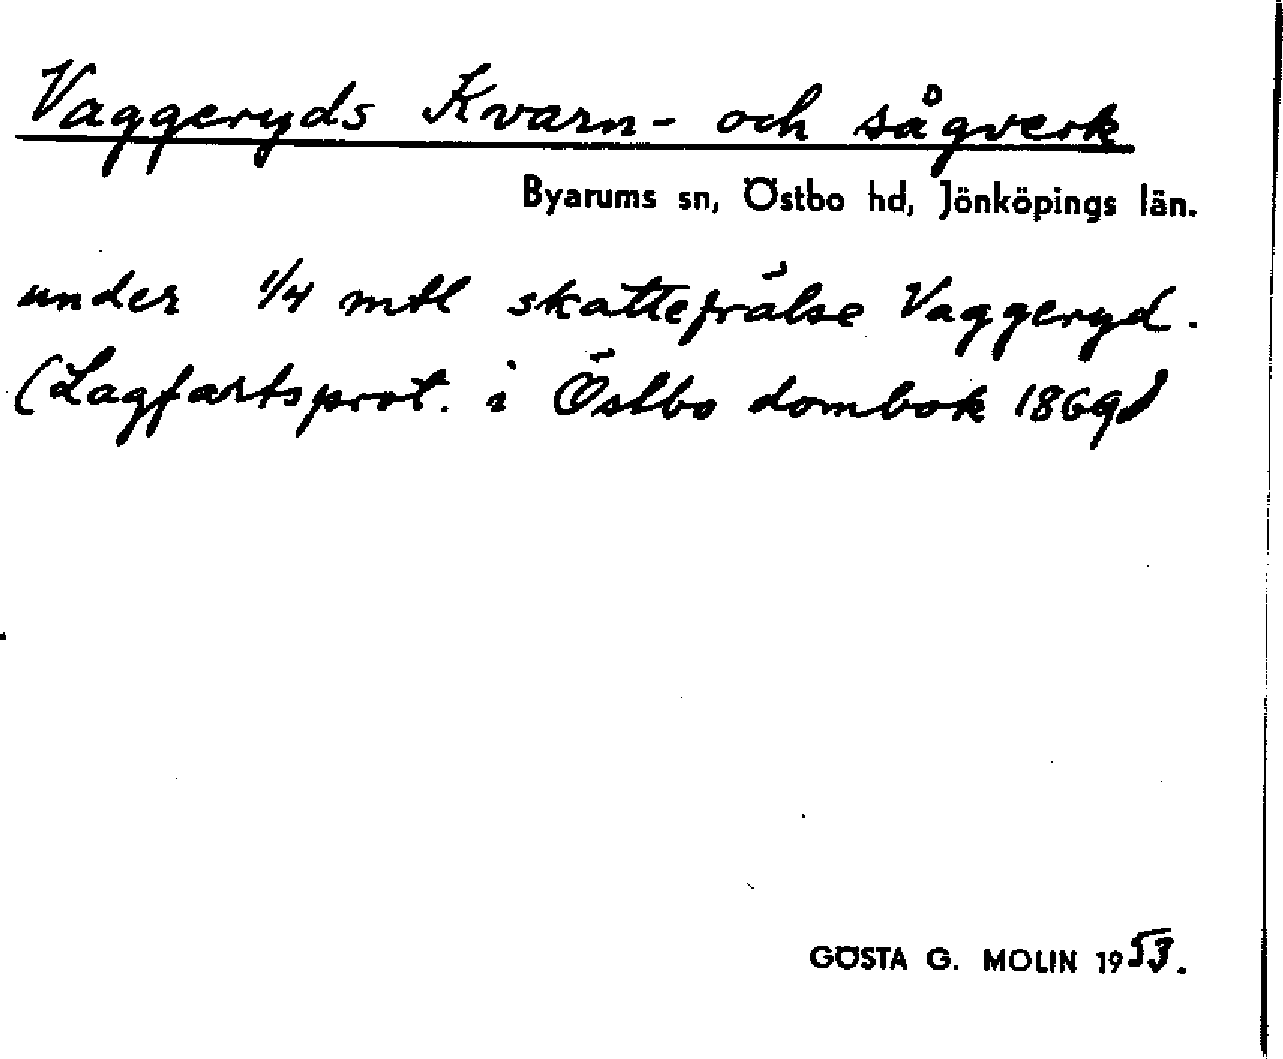 Vaggeryds Kvarn- och sågverk
Byarums sn, Östbo hd, Jönköpings län.
under 1/4 mtl skattefrälse Vaggeryd.
(Lagfartsprot. i Östbo dombok 1869)
GÖSTA G. MOLIN 1953.